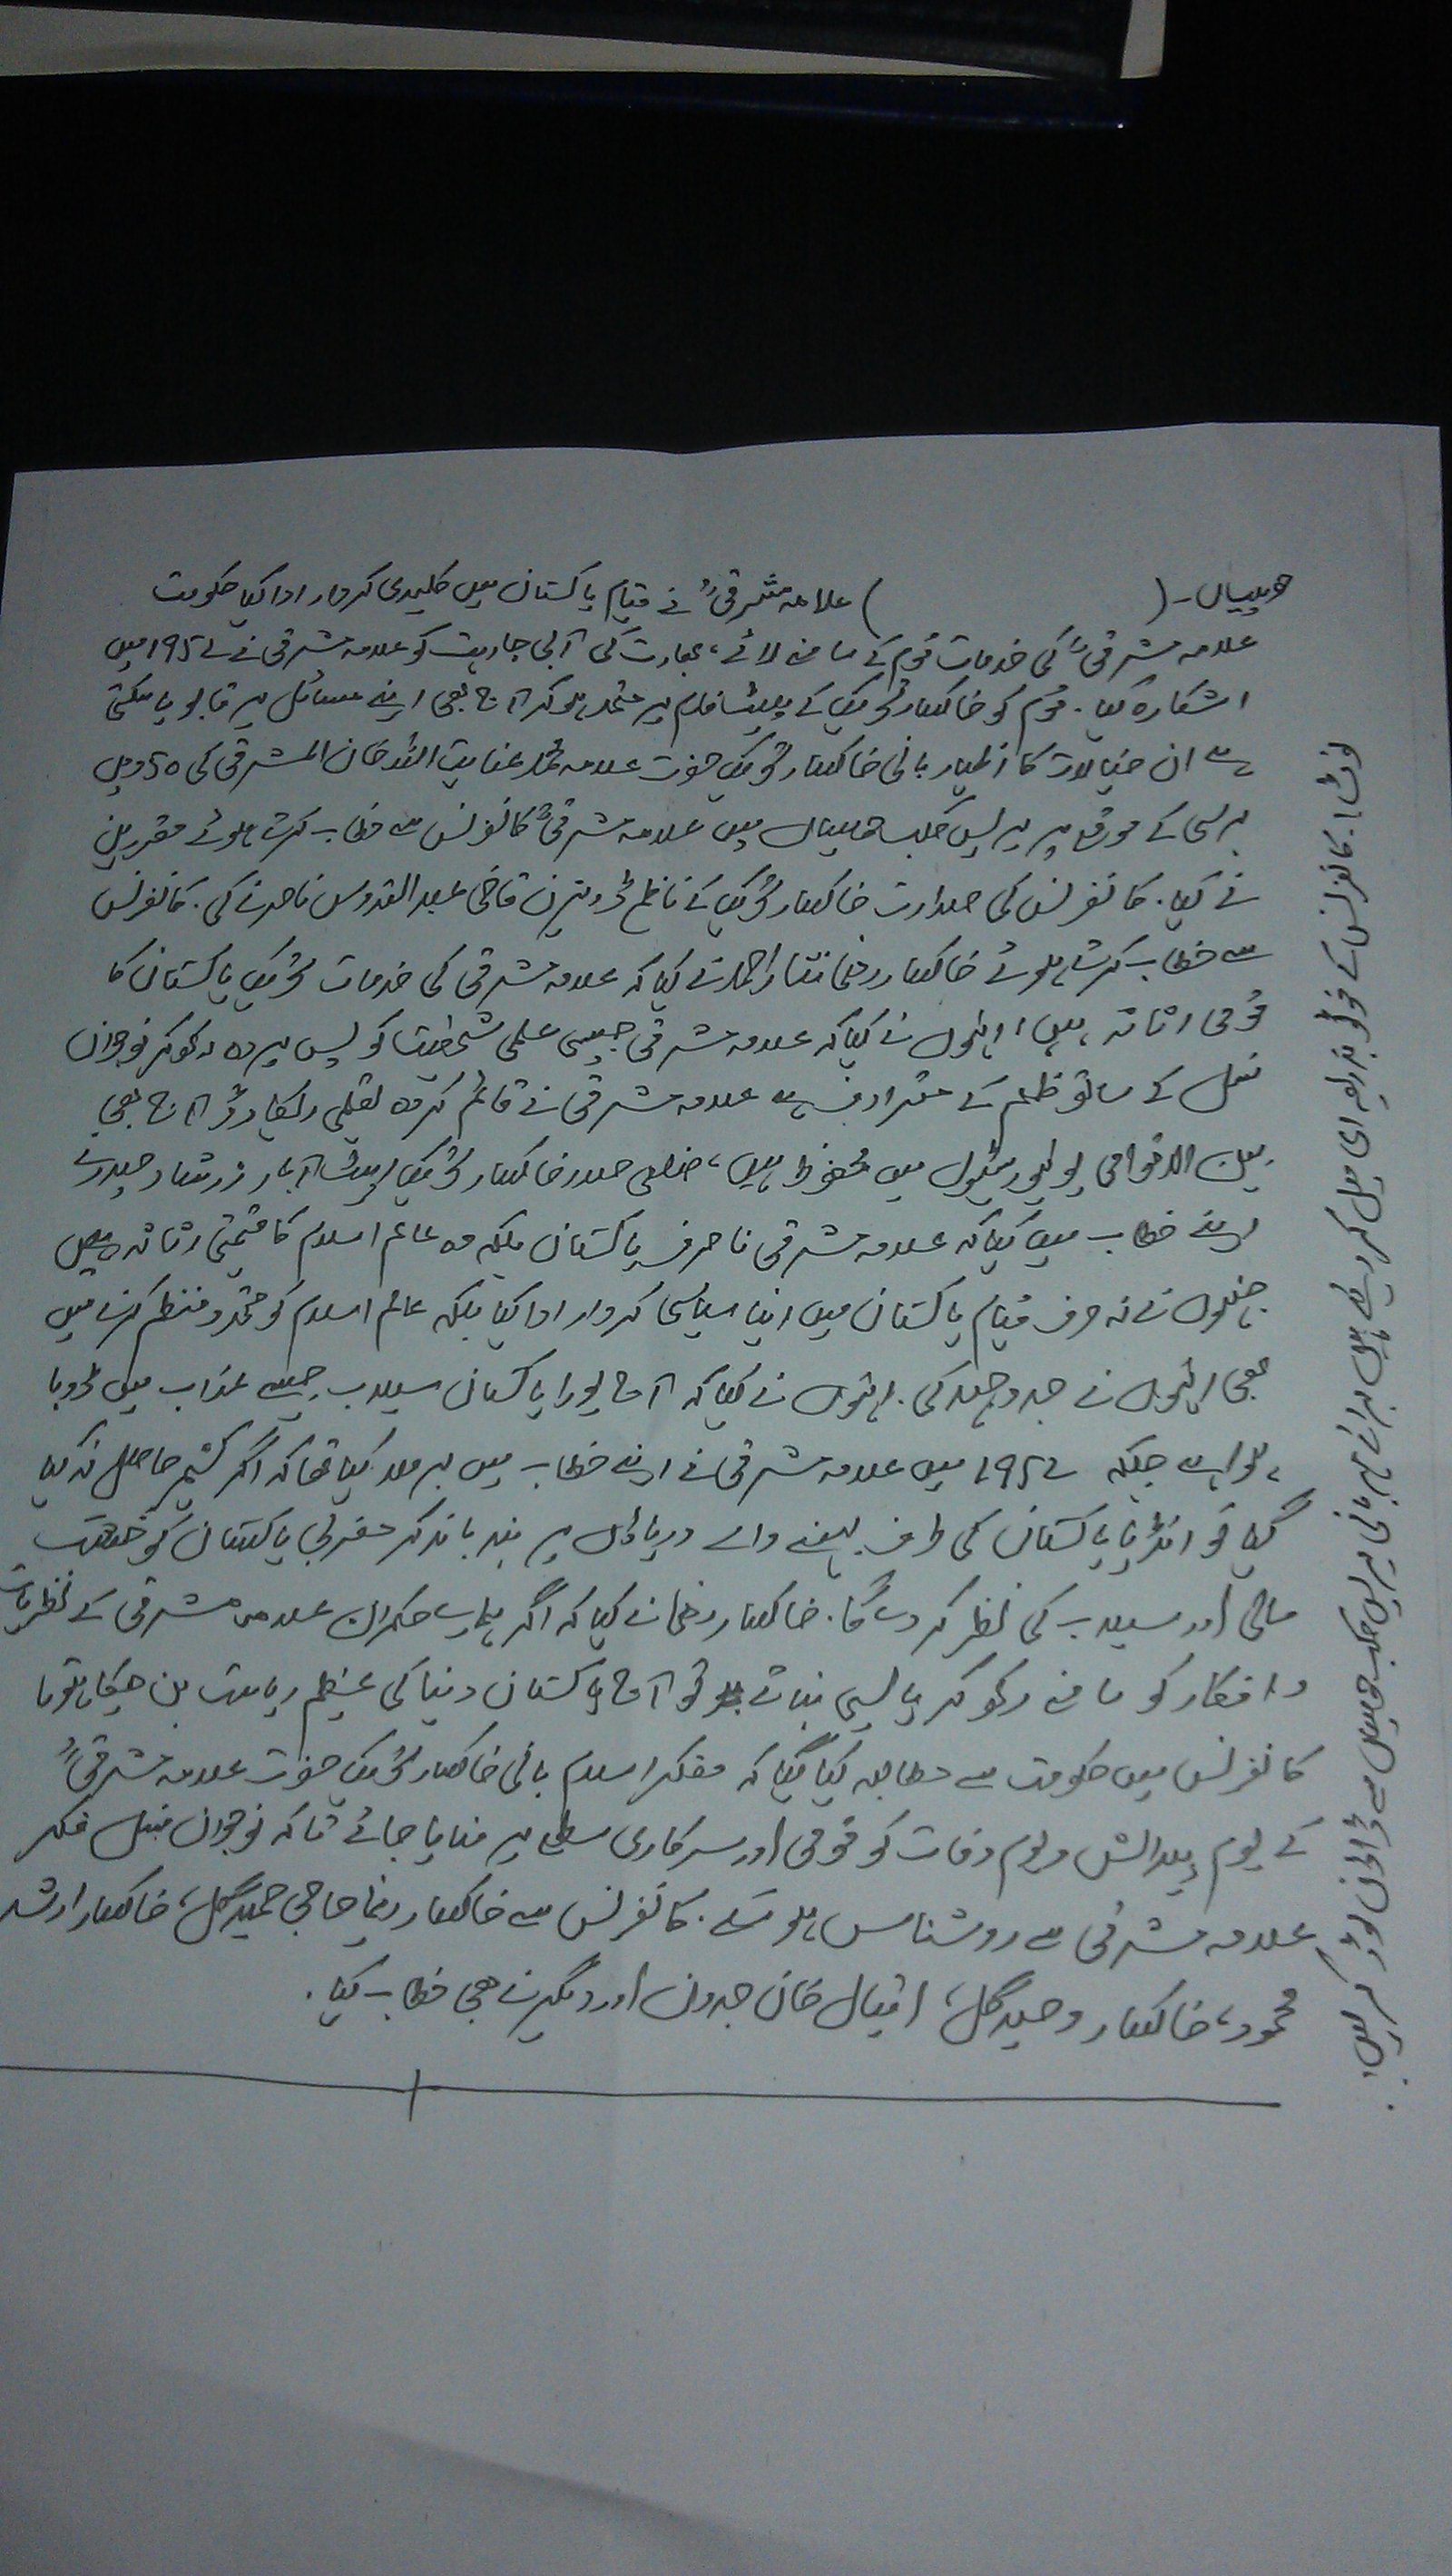 حویلیاں۔(            ) علامہ مشرقیؒ نے قیام پاکستان میں کلیدی کردار ادا کیا حکومت
علامہ مشرقیؒ کی خدمات قوم کے سامنے لائے، بھارت کی آبی جارحیت کو علامہ مشرقی نے 1952 میں
اشکارہ کیا. قوم کو خاکسار تحریک کے پلیٹ فارم پر متحد ہو کر آج بھی اپنے مسائل پر قابو پا سکتی
ہے ان خیالات کا اظہار بانی خاکسار تحریک حضرت علامہ محمد عنایت اللہ خان المشرقی کی 50 ویں
برسی کے موقع پر پریس کلب حویلیاں میں علامہ مشرقیؒ کانفرنس سے خطاب کرتے ہوئے مقررین
نے کیا. کانفرنس کی صدارت خاکسار تحریک کے ناظم ڈویژن قاضی عبدالقدوس ناصر نے کی. کانفرنس
سے خطاب کرتے ہوئے خاکسار رہنما نثار احمد نے کہا کہ علامہ مشرقی کی خدمات تحریک پاکستان کا
قومی اثاثہ ہیں، انہوں نے کہا کہ علامہ مشرقی جیسی علمی شخصیت کو پس پردہ رکھ کر نوجوان
نسل کے ساتھ ظلم کے مترادف ہے علامہ مشرقی نے قائم کردہ تعلیمی ریکارڈ آج بھی
بین الاقوامی یونیورسٹیوں میں محفوظ ہیں، ضلعی صدر خاکسار تحریک ایبٹ آباد زرشاد حیدر نے
اپنے خطاب میں کہا کہ علامہ مشرقی نا صرف پاکستان بلکہ وہ عالم اسلام کا قیمتی اثاثہ ہیں
جنہوں نے نہ صرف قیام پاکستان میں اپنا سیاسی کردار ادا کیا بلکہ عالم اسلام کو متحد و منظم کرنے میں
بھی انہوں نے جدوجہد کی. انہوں نے کہا کہ آج پورا پاکستان سیلاب جیسے عذاب میں ڈوبا
ہوا ہے جبکہ 1952 میں علامہ مشرقی نے اپنے خطاب میں برملا کہا تھا کہ اگر کشمیر حاصل نہ کیا
گیا تو انڈیا پاکستان کی طرف بہنے والے دریاؤں پر بند باندھ کر مغربی پاکستان کو خشک
سالی اور سیلاب کی نظر کر دے گا. خاکسار رہنما نے کہا کہ اگر ہمارے حکمران علامہ مشرقی کے نظریات
و افکار کو سامنے رکھ کر پالیسی بناتے تو آج پاکستان دنیا کی عظیم ریاست بن چکا ہوتا
کانفرنس میں حکومت سے مطالبہ کیا گیا کہ مفکر اسلام بانی خاکسار تحریک حضرت علامہ مشرقیؒ
کے یوم پیدائش و یوم وفات کو قومی اور سرکاری سطح پر منایا جائے تاکہ نوجوان نسل فکر
علامہ مشرقی سے روشناس ہو سکے. کانفرنس سے خاکسار رہنما حاجی حمید گل، خاکسار ارشد
محمود، خاکسار وحید گل، اقبال خان جدون اور دیگر نے بھی خطاب کیا.
نوٹ:. کانفرنس کے فوٹو بذریعہ ای میل کر دیئے ہیں برائے مہربانی پریس کلب میل سے ڈاؤن لوڈ کر لیں.